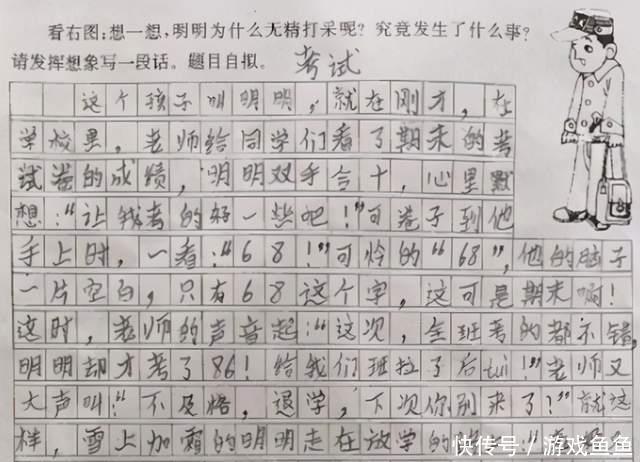 看右图:想一想,明明为什么无精打采呢?究竟发生了什么事?
请发挥想象写一段话。题目自拟。 考试
这个孩子叫明明,就在刚才,在
学校里,老师给同学们看了期末的考
试卷的成绩,明明双手合十,心里默
想:“让我考的好一些吧!”可卷子到他
手上时,一看:“68!”可怜的“68”,他的脑子
一片空白,只有68这个字,这可是期末啊!
这时,老师的声音起:“这次,全班考的都不错,
明明却才考了86!给我们班拉了后tuǐ!”老师又
大声叫:“不及格,退学,下次你别来了!”就这
样,雪上加霜的明明走在放学的
快传号/游戏鱼鱼